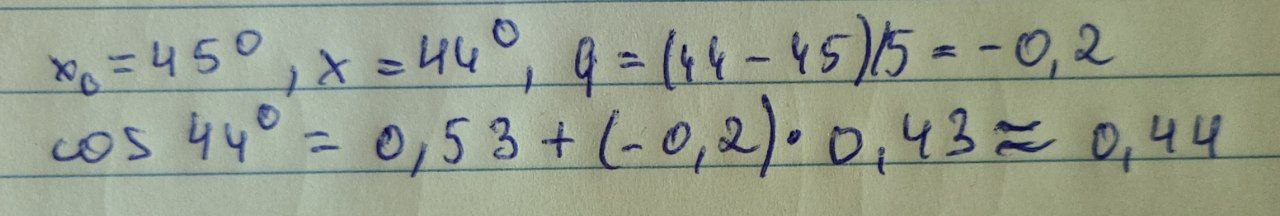 x₀ = 45⁰, x = 44⁰, q = (44 - 45)/5 = -0,2
cos 44⁰ = 0,53 + (-0,2) · 0,43 ≈ 0,44